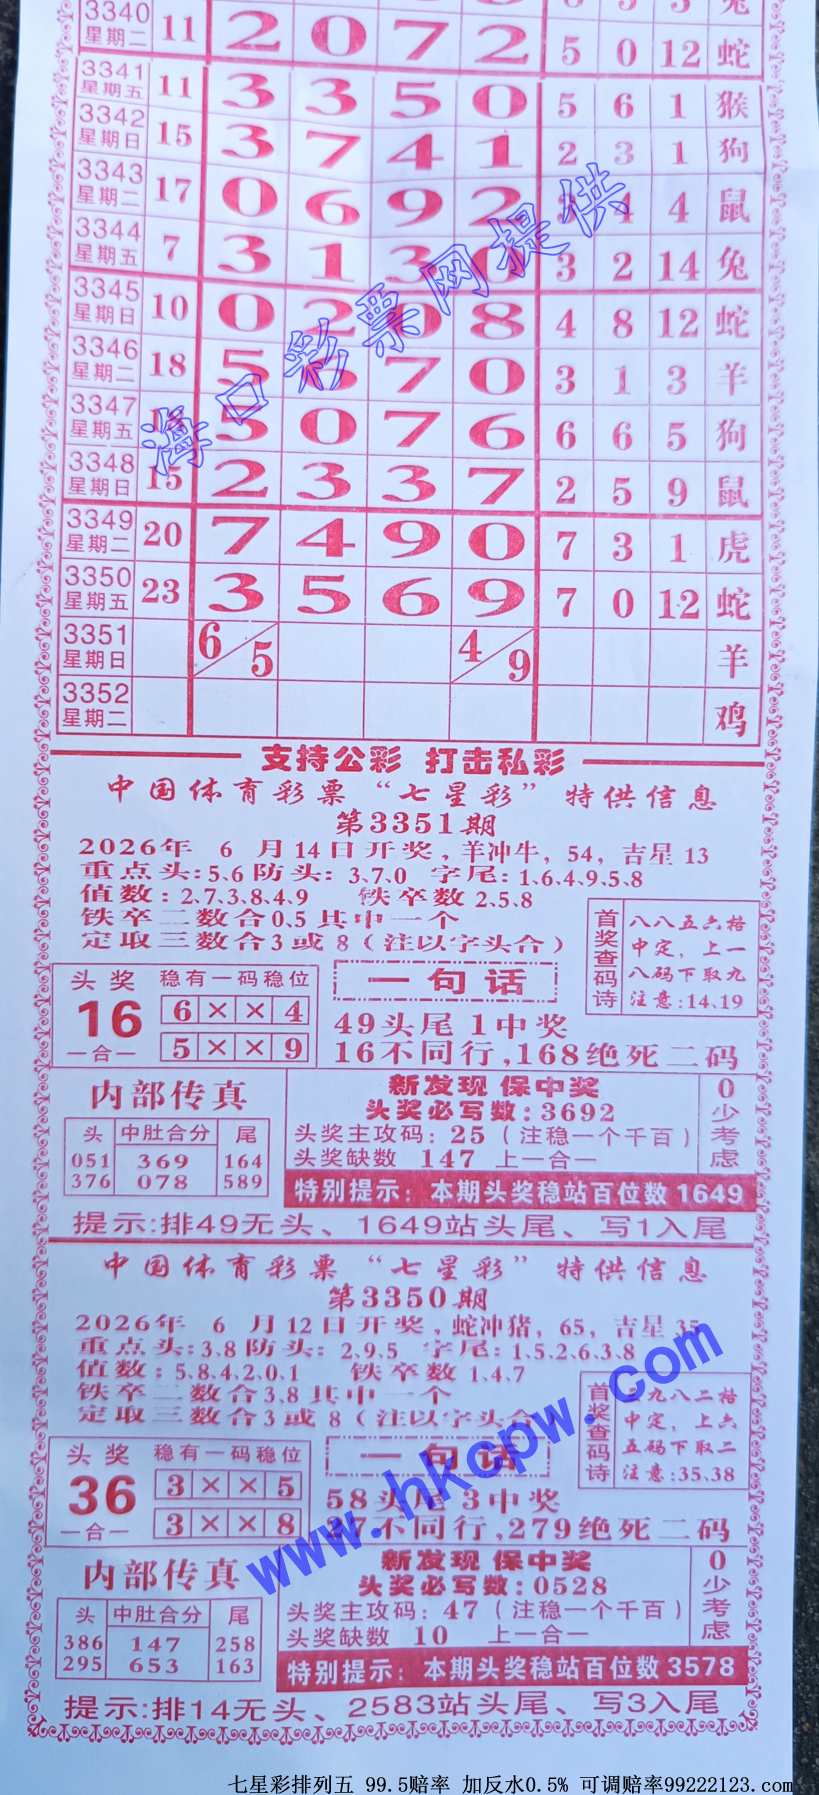 3340 星期二 11 2 0 7 2 5 0 12 蛇
3341 星期五 11 3 3 5 0 5 6 1 猴
3342 星期日 15 3 7 4 1 2 3 1 狗
3343 星期二 17 0 6 9 2 4 4 鼠
3344 星期五 7 3 1 3 0 3 2 14 兔
3345 星期日 10 0 2 0 8 4 8 12 蛇
3346 星期二 18 5 7 0 3 1 3 羊
3347 星期五 5 0 7 6 6 6 5 狗
3348 星期日 15 2 3 3 7 2 5 9 鼠
3349 星期二 20 7 4 9 0 7 3 1 虎
3350 星期五 23 3 5 6 9 7 0 12 蛇
3351 星期日 6/5 4/9 羊
3352 星期二 鸡
海口彩票网提供
支持公彩 打击私彩
中国体育彩票“七星彩”特供信息
第3351期
2026年 6 月14日开奖,羊冲牛,54,吉星13
重点头:5、6防头:3、7、0 字尾:1、6、4、9、5、8
值数:2、7、3、8、4、9 铁卒数2、5、8
铁卒二数合0、5其中一个
定取三数合3或8(注以字头合)
首奖查码诗
八八五六格
中定,上一
八码下取九
注意:14、19
头奖 16 一合一
稳有一码稳位
6 × × 4
5 × × 9
一句话
49头尾1中奖
16不同行,168绝死二码
内部传真
头 中肚合分 尾
051 369 164
376 078 589
新发现 保中奖
头奖必写数:3692
头奖主攻码:25(注稳一个千百)
头奖缺数 147 上一合一
0少考虑
特别提示:本期头奖稳站百位数1649
提示:排49无头、1649站头尾、写1入尾
中国体育彩票“七星彩”特供信息
第3350期
2026年 6 月12日开奖,蛇冲猪,65,吉星35
重点头:3、8防头:2、9、5 字尾:1、5、2、6、3、8
值数:5、8、4、2、0、1 铁卒数1、4、7
铁卒二数合3、8其中一个
定取三数合3或8(注以字头合)
首奖查码诗
九八二格
中定,上六
五码下取二
注意:35、38
头奖 36 一合一
稳有一码稳位
3 × × 5
3 × × 8
一句话
58头尾3中奖
7不同行,279绝死二码
内部传真
头 中肚合分 尾
386 147 258
295 653 163
新发现 保中奖
头奖必写数:0528
头奖主攻码:47(注稳一个千百)
头奖缺数 10 上一合一
0少考虑
特别提示:本期头奖稳站百位数3578
提示:排14无头、2583站头尾、写3入尾
www.hkcpw.com
七星彩排列五 99.5赔率 加反水0.5% 可调赔率99222123.com